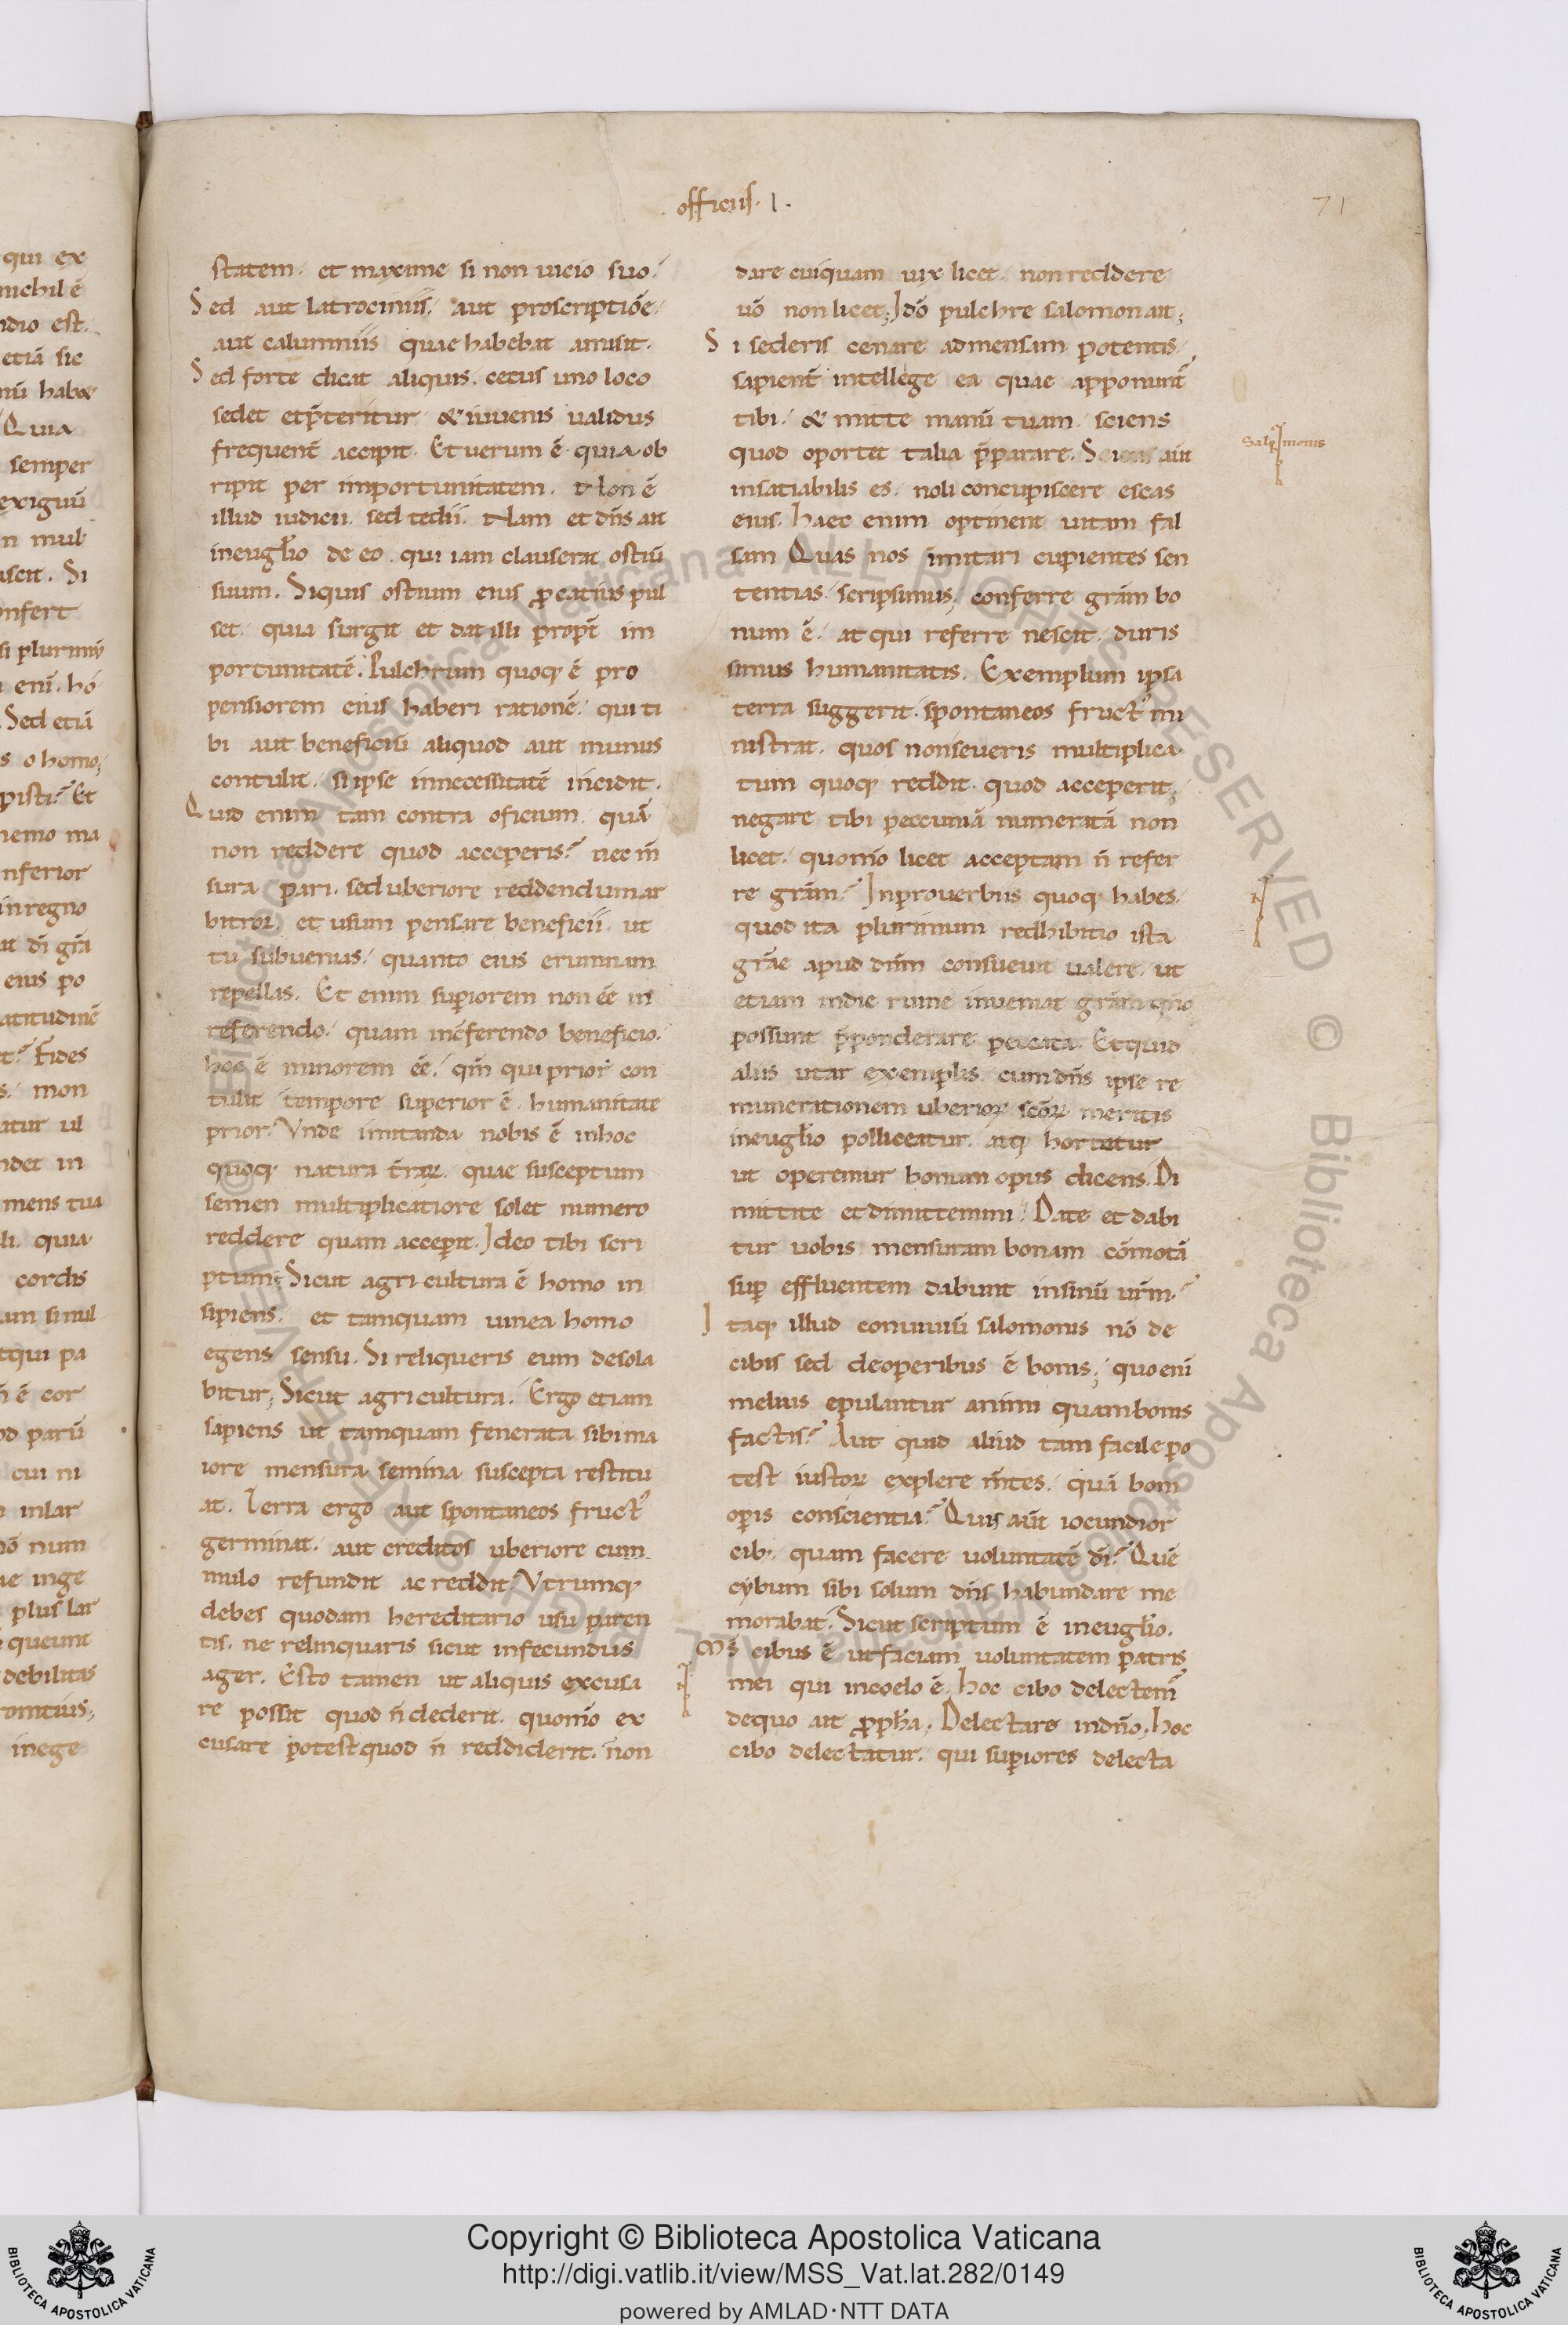 officiis. I.
71
statem. et maxime si non uicio suo.
Sed aut latrociniis. aut proscriptiōe.
aut calumniis quae habebat amisit.
Sed forte dicat aliquis. cecus uno loco
sedet et p̄teritur & iuuenis ualidus
frequent̄ accipit. Et uerum ē quia ob
ripit per importunitatem. Non ē
illud iudicii. sed tedii. Nam et dn̄s ait
in euglīo de eo. qui iam clauserat ostiū
suum. Siquis ostium eius ꝓcatius pul
set. quia surgit et dat illi propt̄ im
portunitatē. Pulchrum quoq; ē pro
pensiorem eius haberi rationē. qui ti
bi aut beneficiū aliquod aut munus
contulit. si ipse in necessitatē incidit.
Quid enim tam contra oficium. quā
non reddere quod acceperis? nec m̄
sura pari. sed uberiore reddendum ar
bitror. et usum pensare beneficii. ut
tu subuenias. quanto eius erumnam
repellas. Et enim superiorem non eē in
referendo. quam in c̄ferendo beneficio.
hoc ē minorem eē. qm̄ qui prior con
tulit tempore superior ē. humanitate
prior. Vnde imitanda nobis ē in hoc
quoq; natura t̄raꝝ. quae susceptum
semen multiplicatiore solet numero
reddere quam acceperit. Ideo tibi scri
ptum; Sicut agricultura ē homo in
sipiens. et tamquam uinea homo
egens sensu. Si reliqueris eum desola
bitur; Sicut agricultura. Ergo etiam
sapiens ut tamquam fenerata sibi ma
iore mensura semina suscepta restitu
at. Terra ergo aut spontaneos fruct᾽
germinat. aut creditos uberiore cum
mulo refundit ac reddit. Vtrumq;
debes quodam hereditario usu paren
tis. ne relinquaris sicut infecundus
ager. Esto tamen ut aliquis excusa
re possit quod n̄ dederit. quomō ex
cusare potest quod n̄ reddiderit. non
dare cuiquam uix licet. non reddere
uō non licet; Idō pulchre salomon ait;
Si sederis cenare ad mensam potentis.
sapient̄ intellege ea quae apponunt̄
tibi. & mitte manū tuam. sciens
quod oportet talia p̄parare. aūt
insatiabilis es. noli concupiscere escas
eius. Haec enim optinent uitam fal
sam Quas nos imitari cupientes sen
tentias. scripsimus. conferre grām bo
num ē. at qui referre nescit. duris
simus humanitatis. Exemplum ipsa
terra suggerit. spontaneos fruct᾽ mi
nistrat. quos non seueris multiplica
tum quoq; reddit. quod acceperit;
negare tibi peccuniā numeratā non
licet. quomō licet acceptam n̄ refer
re grām? In prouerbiis quoq; habes.
quod ita plurimum redhibitio ista
grāe apud dn̄m consueuit ualere. ut
etiam in die ruine inueniat grām qn̄o
possunt p̄ponderare peccata. Et quid
aliis utar exemplis. cum dn̄s ipse re
munerationem uberiorꝝ scōꝝ meritis
in euglīo polliceatur. atq; hortetur
ut operemur bonum opus dicens. Di
mittite et dimittemini. Date et dabi
tur uobis mensuram bonam cōmotā
suꝑ effluentem dabunt in sinū ur̄m.
Itaq; illud conuiuiū salomonis nō de
cibis sed de operibus ē bonis; quo enī
melius epulantur animi quam bonis
factis? Aut quid aliud tam facile po
test iustoꝝ explere m̄tes. quā boni
opis conscientia? Quis aūt iocundior
cib;. quam facere uoluntatē dī? Quē
cybum sibi solum dn̄s habundare me
morabat. Sicut scriptum ē in euglīo.
Ms̄ cibus ē ut faciam uoluntatem patris
mei qui in coelo ē. Hoc cibo delectem̄
de quo ait ꝓpha; Delectare in dn̄o; Hoc
cibo delectatur. qui superiores delecta
Salomonis
qui ex
nichil ē
est.
etiā sic
Quia
semper
exiguū
n mul
Si
nfert
si plurimū
enī. hō
Sed etiā
s o homo;
Et
nemo ma
nferior
in regno
dī grā
eius po
atitudinē
Fides
mon
ul
in
mens tua
quia
cordis
simul
pa
ē cor
parū
cui ni
inlar
num
inge
plus lar
queunt
debilitas
inege
Copyright © Biblioteca Apostolica Vaticana
http://digi.vatlib.it/view/MSS_Vat.lat.282/0149
powered by AMLAD·NTT DATA
BIBLIOTECA APOSTOLICA VATICANA
BIBLIOTECA APOSTOLICA VATICANA
© Biblioteca Apostolica Vaticana ALL RIGHTS RESERVED © Biblioteca Apostolica Vaticana ALL RIGHTS RESERVED